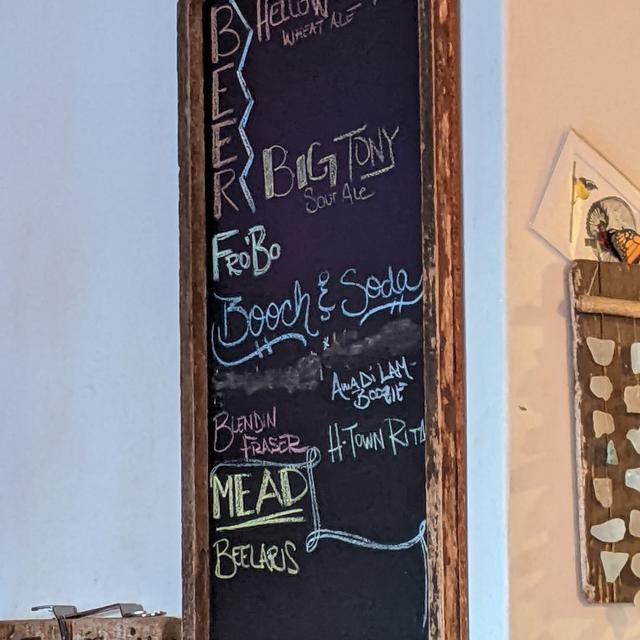 BEER
HELLOW
WHEAT ALE
BIG TONY
SOUR ALE
FRO'BO
Booch & Soda
AWADI'LAM
BOOGIE
BLENDIN
FRASER
H-TOWN RITA
MEAD
BEELARUS